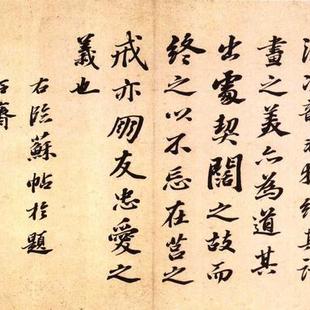 畫之義亦為道其
出處契闊之故而
終之以不忘在莒之
戒亦朋友忠愛之
義也
右臨蘇帖於題